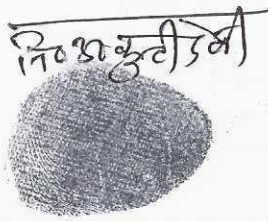 नि०अ० कुटी देवी